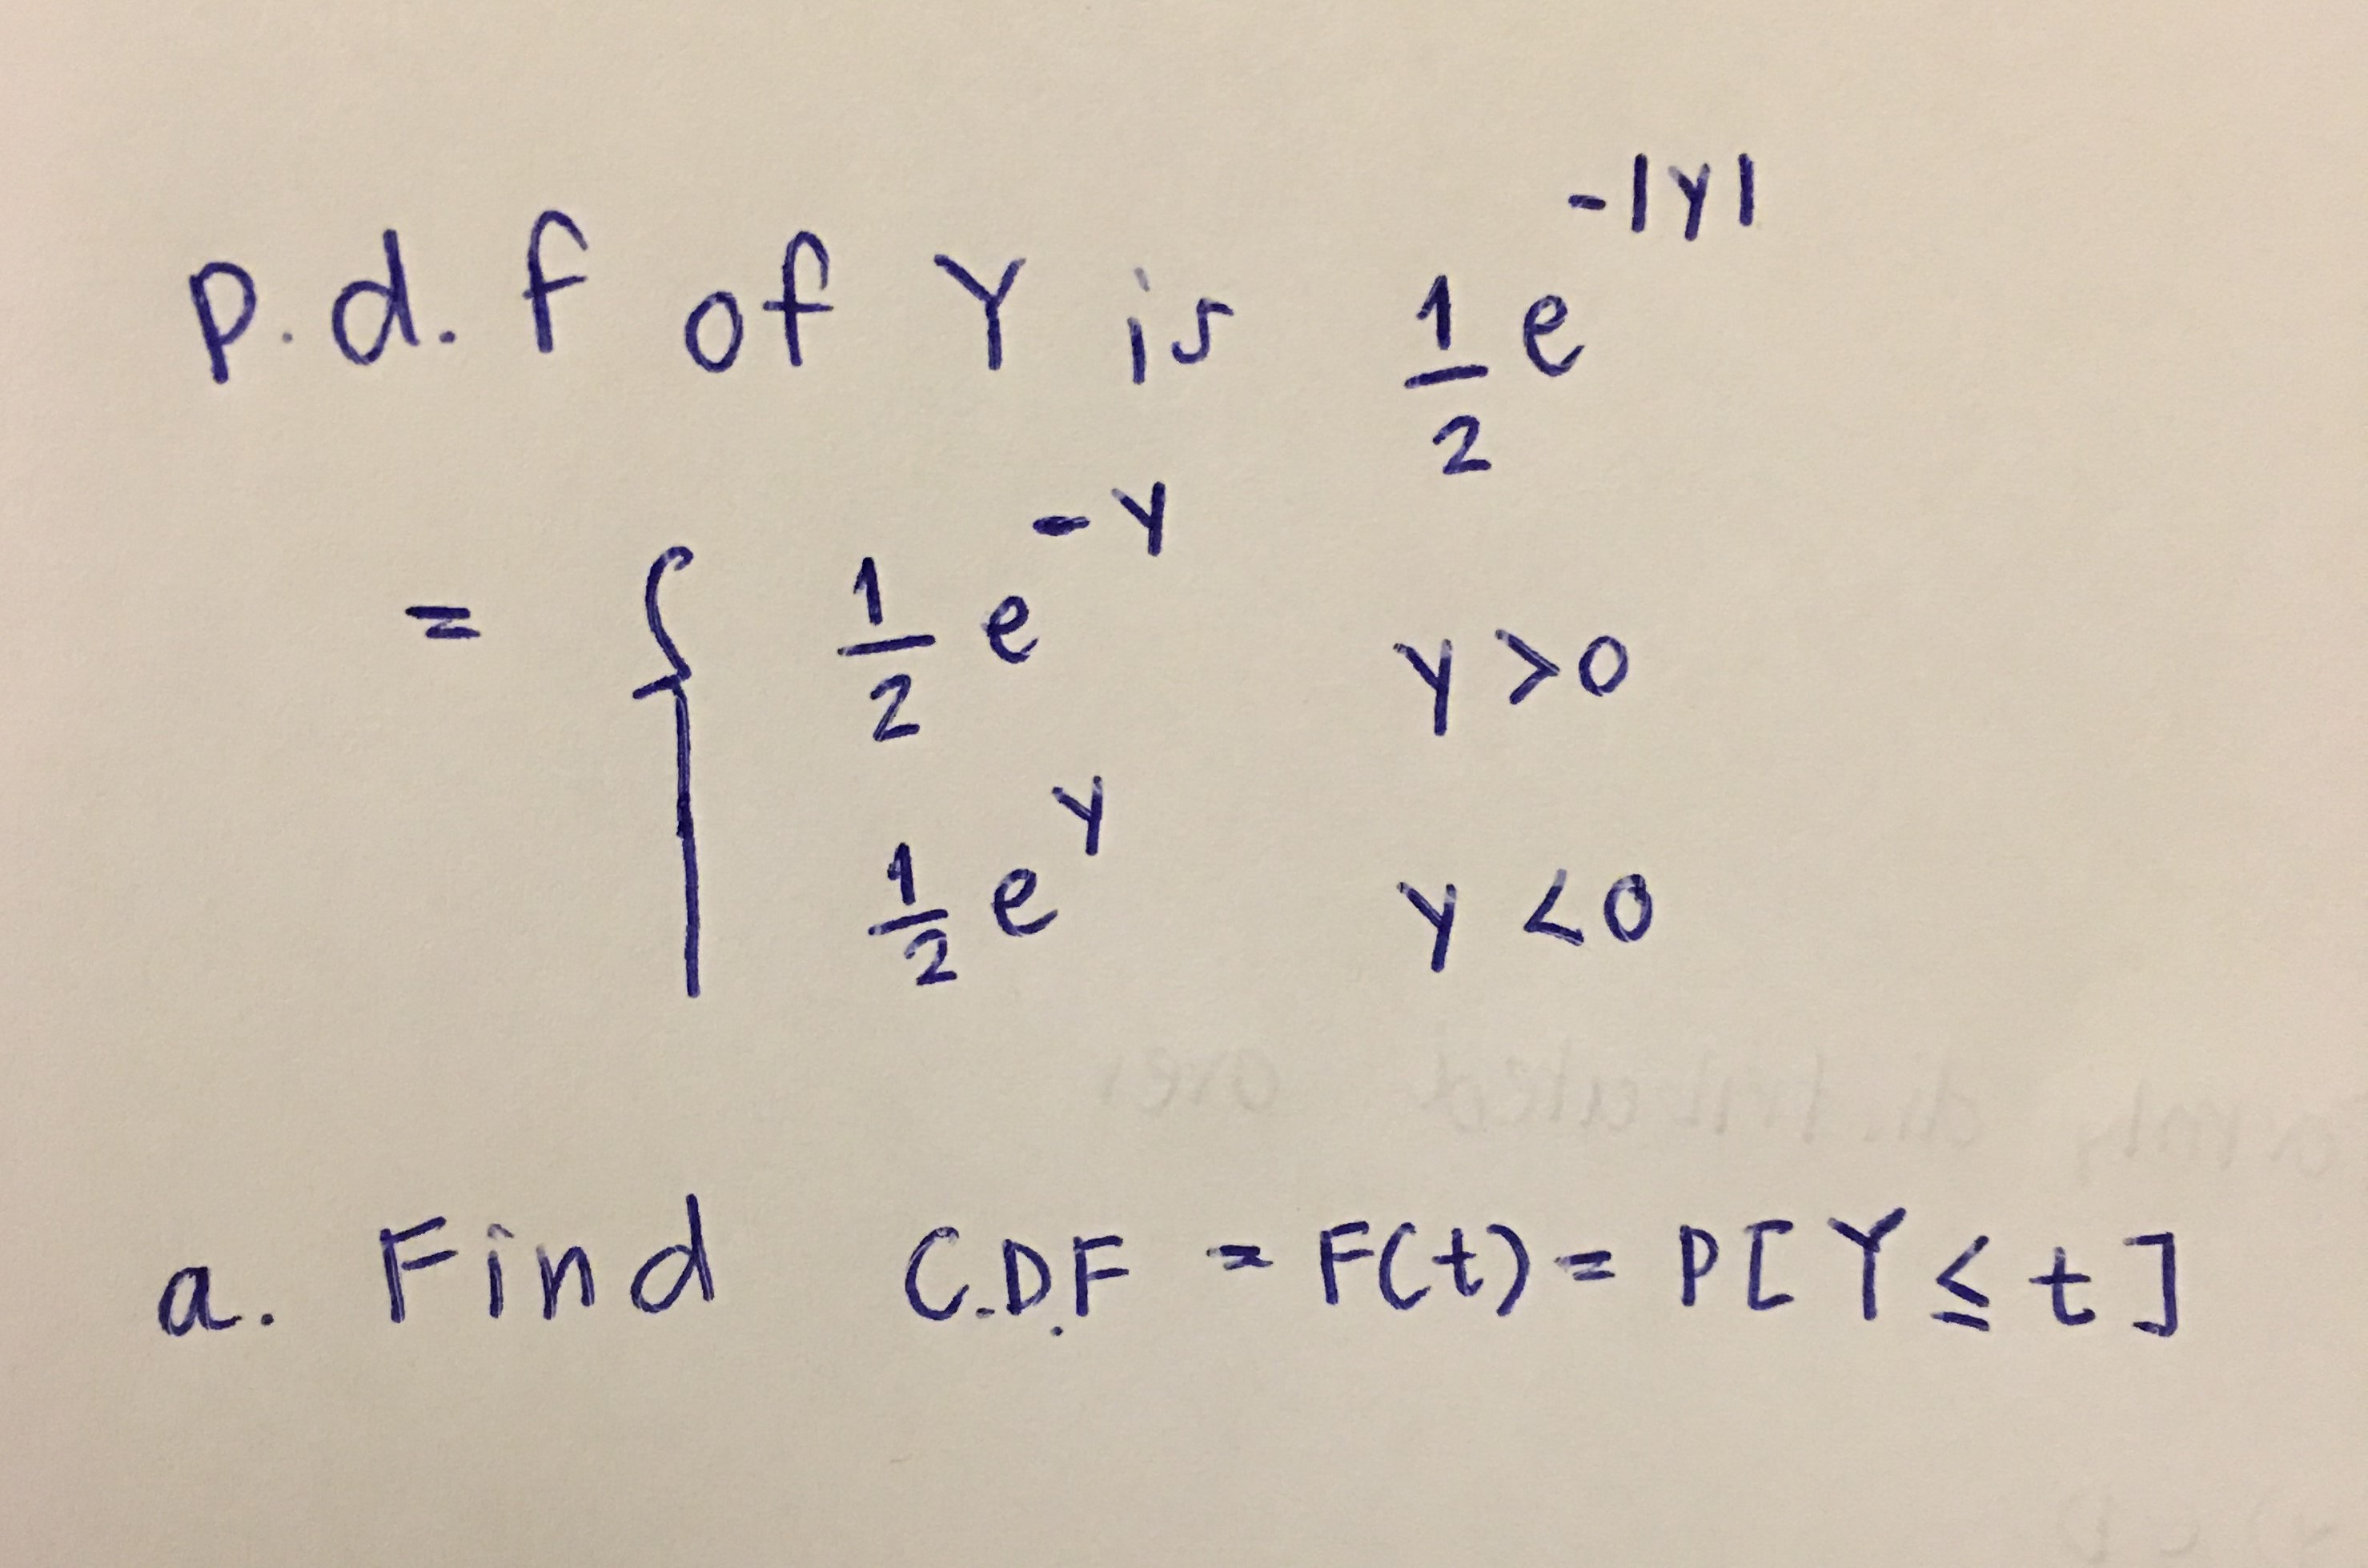 P.d.f of Y is 1/2 e^-|y|
= { 1/2 e^-y y>0
1/2 e^y y<0
a. Find C.D.F = F(t) = P[Y ≤ t]